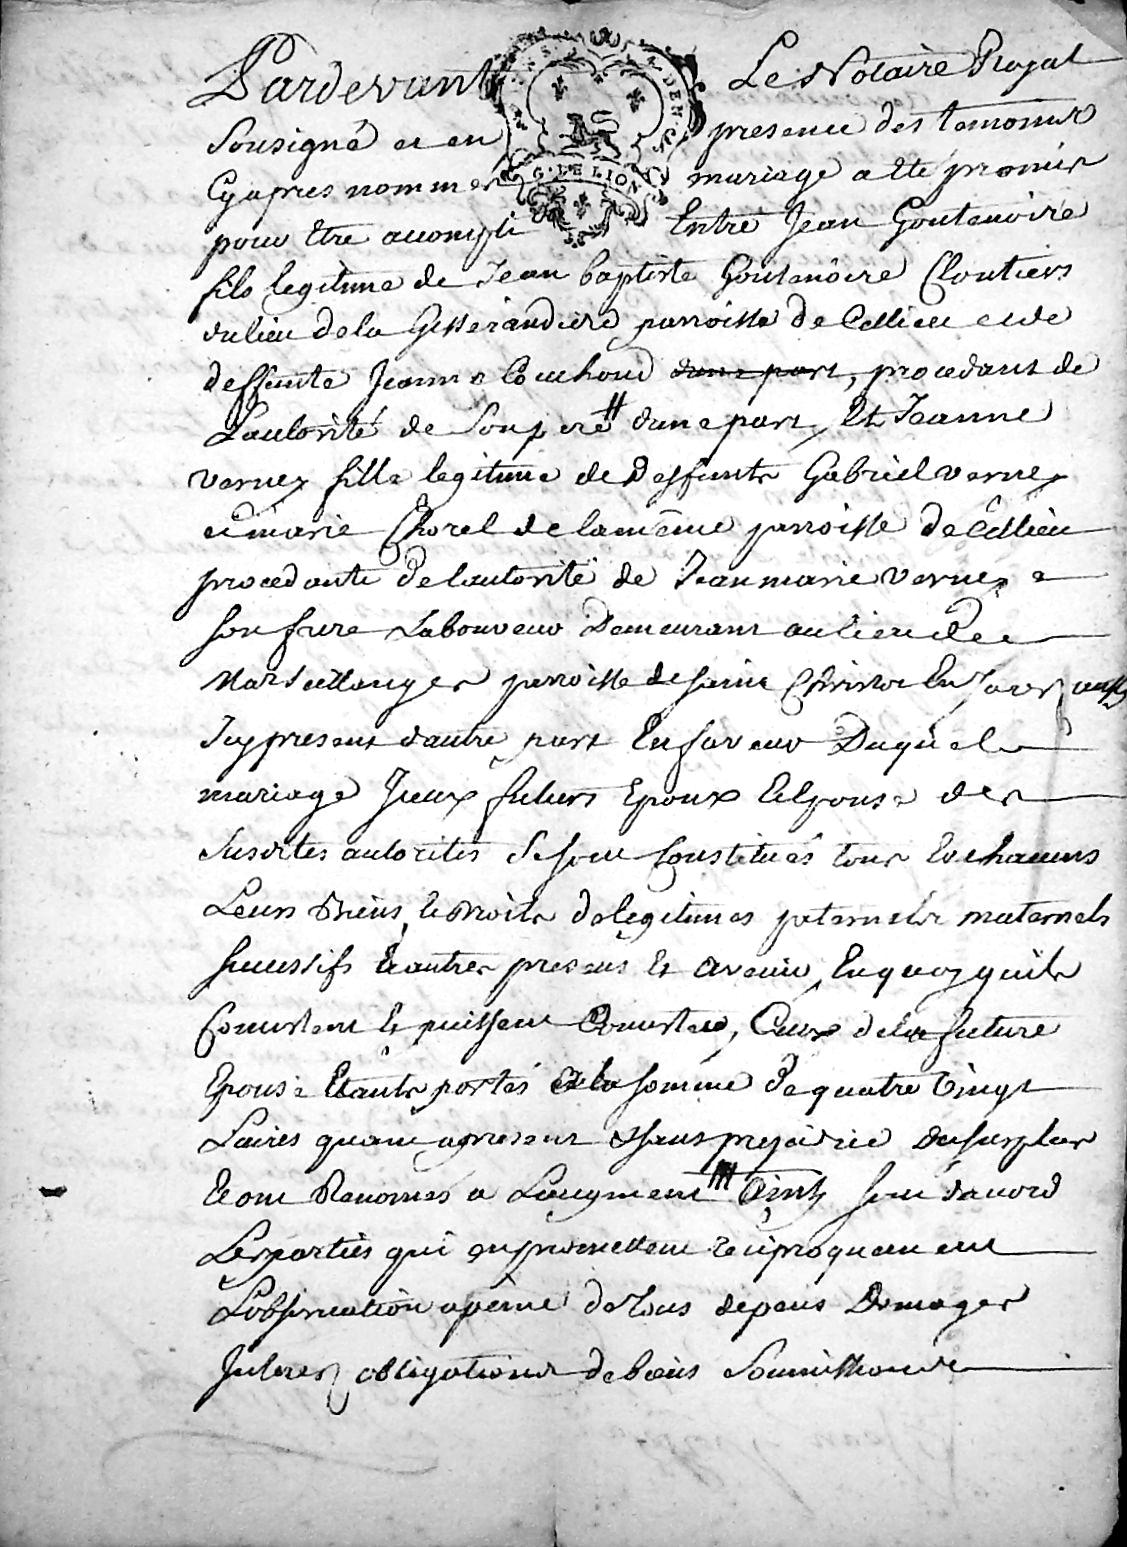 Pardevant Le Notaire Royal
Sousigné et en presence des temoins
Cyapres nommes mariage a ete promis
G. DE LION
pour Etre accompli Entre Jean Goutenoire
fils legitime de Jean baptiste Goutenoire Cloutiers
du lieu de la Gisserandiere parroisse de Cellieu et de
deffunte Jeanne Couchoud dune part, procedant de
Lautorité de Son pere dune part, Et Jeanne
vernez fille legitime de Deffunts Gabriel vernez
et marie Chorel de la même parroisse de Cellieu
procedante de lautorité de Jean marie vernez
son frere Laboureur Demeurant au lieu de
parroisse de saint Christot En Jarez
Icy present dautre part En faveur Duquel
mariage Iceux futurs Epoux Et Epouse des
Susdites autorites Se sont Constitués tous Et chacuns
Leurs Biens, et Droits de legitimes paternels maternels
successifs Et autres presens Et avenir, En quoy quils
Consistent Et puissent Consister, Ceux de la future
Epouse Etants portés a la somme de quatre vingt
Livres quant apresent Et sans prejudice du surplus
Et ont Renoncés a Laugment Ainsy sont daccord
Les parties qui en promettent reciproquement
Lobservation a peine de tous depens Domages
Interes obligations de biens Soumissions